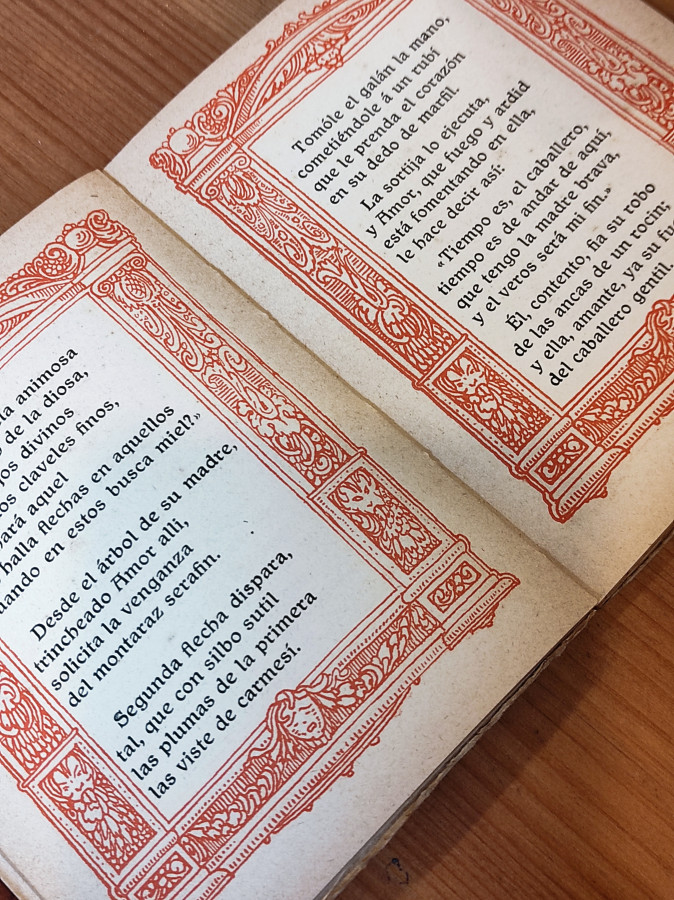 la animosa
de la diosa,
divinos
claveles finos,
aquel
halla flechas en aquellos
en estos busca miel?»
Desde el árbol de su madre,
trincheado Amor allí,
solicita la venganza
del montaraz serafín.
Segunda flecha dispara,
tal, que con silbo sutil
las plumas de la primera
las viste de carmesí.
Tomóle el galán la mano,
cometiéndole á un rubí
que le prenda el corazón
en su dedo de marfil.
La sortija lo ejecuta,
y Amor, que fuego y ardid
está fomentando en ella,
le hace decir así:
«Tiempo es, el caballero,
tiempo es de andar de aquí,
que tengo la madre brava,
y el veros será mi fin.»
Él, contento, fía su robo
de las ancas de un rocín;
y ella, amante, ya su
del caballero gentil.